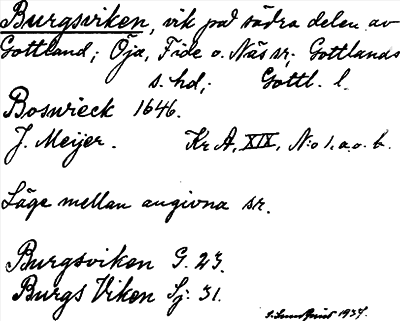 Burgsviken, vik på södra delen av
Gottland; Öja, Fide o. Näs sr; Gottlands
s. hd; Gottl. l.
Boswieck 1646.
J. Meijer. Kr A, XIX, N:o 1. a. o. b.
Läge mellan angivna sr.
Burgsviken G. 23.
Burgs Viken Sj: 31.
1937.